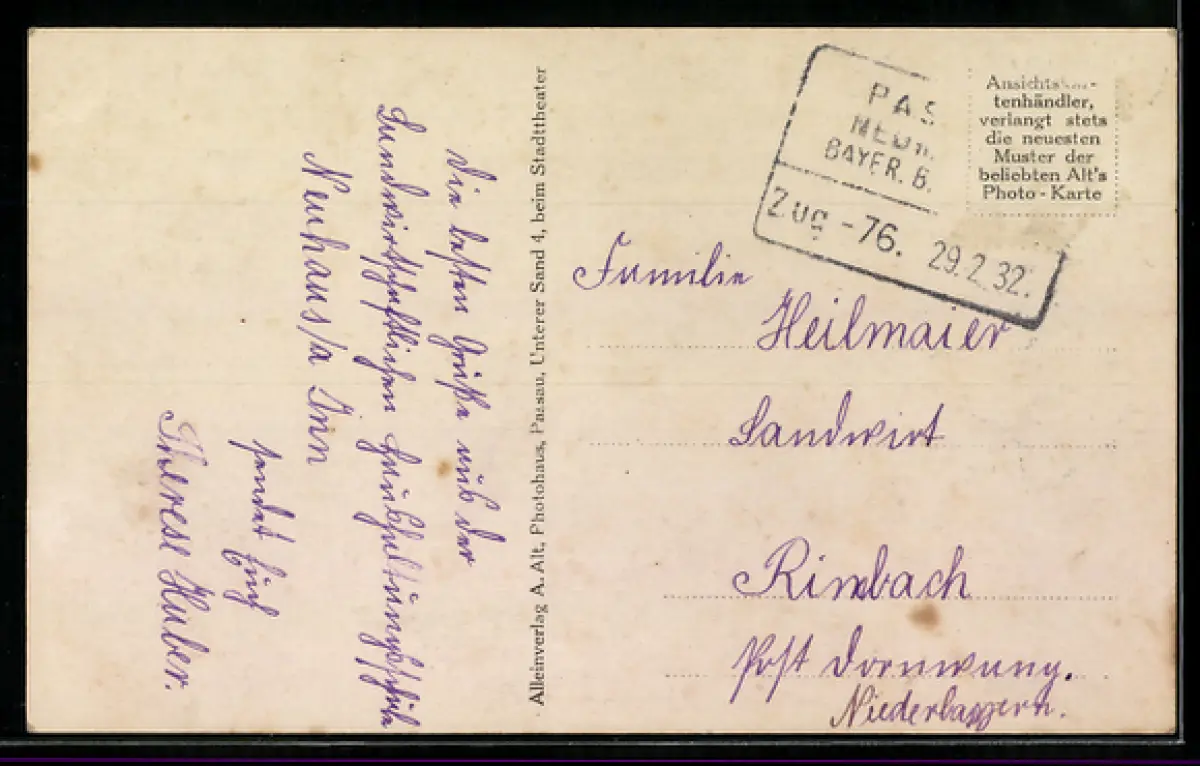 Die besten Grüße aus der
Landwirtschaftlichen Haushaltungsschule
Neuhaus/a Inn
sendet Euch
Therese Huber.
Alleinverlag A. Alt, Photohaus, Passau, Unterer Sand 4, beim Stadttheater
PAS
BAYER. B.
Zug -76. 29.2.32.
tenhändler,
verlangt stets
die neuesten
Muster der
beliebten Alt's
Photo - Karte
Familie
Heilmaier
Landwirt
Rimbach
Post Dornwang.
Niederbayern.